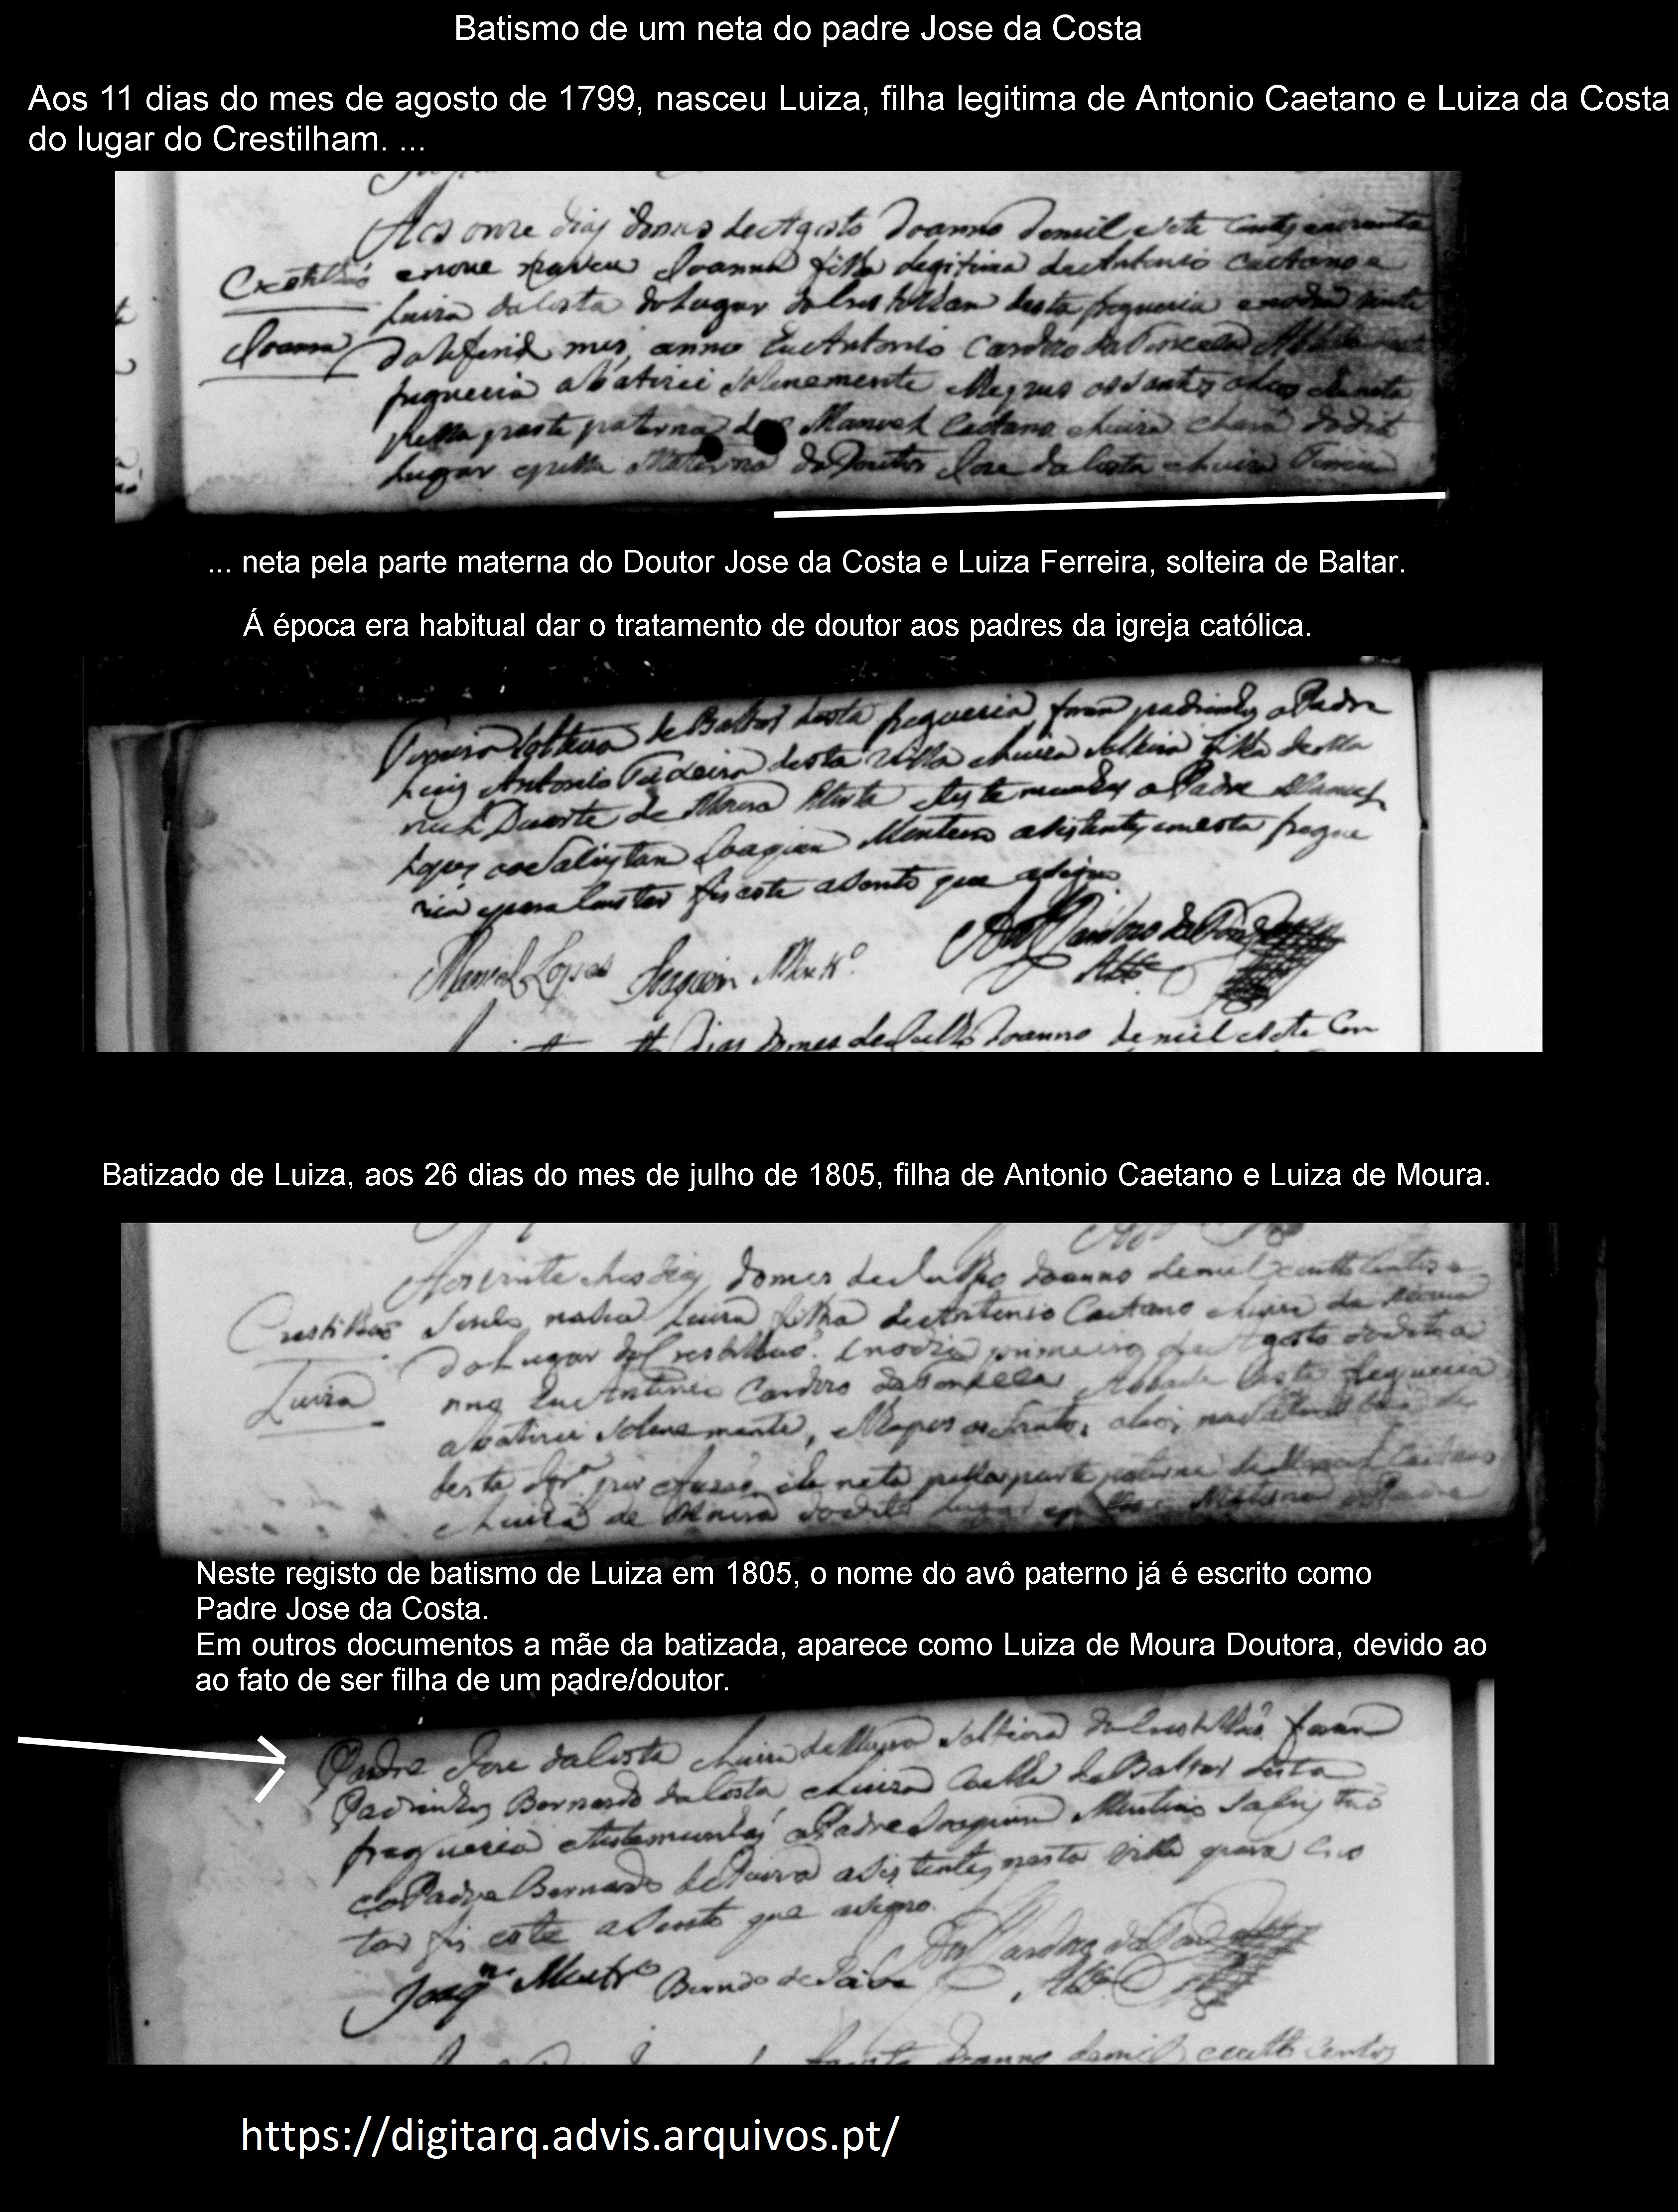 Batismo de um neta do padre Jose da Costa
Aos 11 dias do mes de agosto de 1799, nasceu Luiza, filha legitima de Antonio Caetano e Luiza da Costa
do lugar do Crestilham. ...
Aos onze dias do mes de Agosto do anno de mil e sete centos e noventa
Crestilhaó
e nove naceu Joanna filha legitima de Antonio Caetano e
Luiza da Costa do lugar do Crestilham desta freguezia e no dia vinte
Joanna
do referido mes, anno Eu Antonio Cardozo da Fonceca
freguezia a batizei solenemente e lhe pus os santos oleos he neta
pella parte paterna de Manoel Caetano e Luiza do dito
lugar e pella Materna do Doutor Jose da Costa e Luiza
... neta pela parte materna do Doutor Jose da Costa e Luiza Ferreira, solteira de Baltar.
Á época era habitual dar o tratamento de doutor aos padres da igreja católica.
solteira de Baltar desta freguezia foram padrinhos o Padre
Luis Antonio Teixeira desta Villa e Luiza solteira filha de Ma
noel Duarte de Moura testemunhas o Padre Manoel
Lopes e o Salistam Joaquim Monteiro asistentes em esta fregue
zia e para constar fis este asento que asigno
Manoel Lopes Joaquim Montr.º
dias do mes de Julho do anno de mil e sete cen
Batizado de Luiza, aos 26 dias do mes de julho de 1805, filha de Antonio Caetano e Luiza de Moura.
Aos vinte e seis dias do mes de Julho do anno de mil e outto centos e
Crestilhaó
sinco naceu Luiza filha de Antonio Caetano e Luiza de Moura
do Lugar do Crestilhaó. E no dia primeiro de Agosto do dito a
Luiza
nno Eu Antonio Cardozo da Fonceca Abbade desta freguezia
a batizei solenemente, e lhe pus os santos oleos
desta he neta pella parte paterna de Manoel Caetano
e Luiza de Moura do dito Lugar e pella Materna o Padre
Neste registo de batismo de Luiza em 1805, o nome do avô paterno já é escrito como
Padre Jose da Costa.
Em outros documentos a mãe da batizada, aparece como Luiza de Moura Doutora, devido ao
ao fato de ser filha de um padre/doutor.
Padre Jose da Costa e Luiza de Moura solteira do Crestilhaó foram
Padrinhos Bernardo da Costa e Luiza Coelha de Baltar desta
freguezia e testemunhas o Padre Joaquim Monteiro Salistaó
e o Padre Bernardo de Paiva asistentes nesta villa e para cons
tar fis este asento que asigno.
Joaq.m Montr.o Bernardo de Paiva
do anno de mil e outto centos
https://digitarq.advis.arquivos.pt/